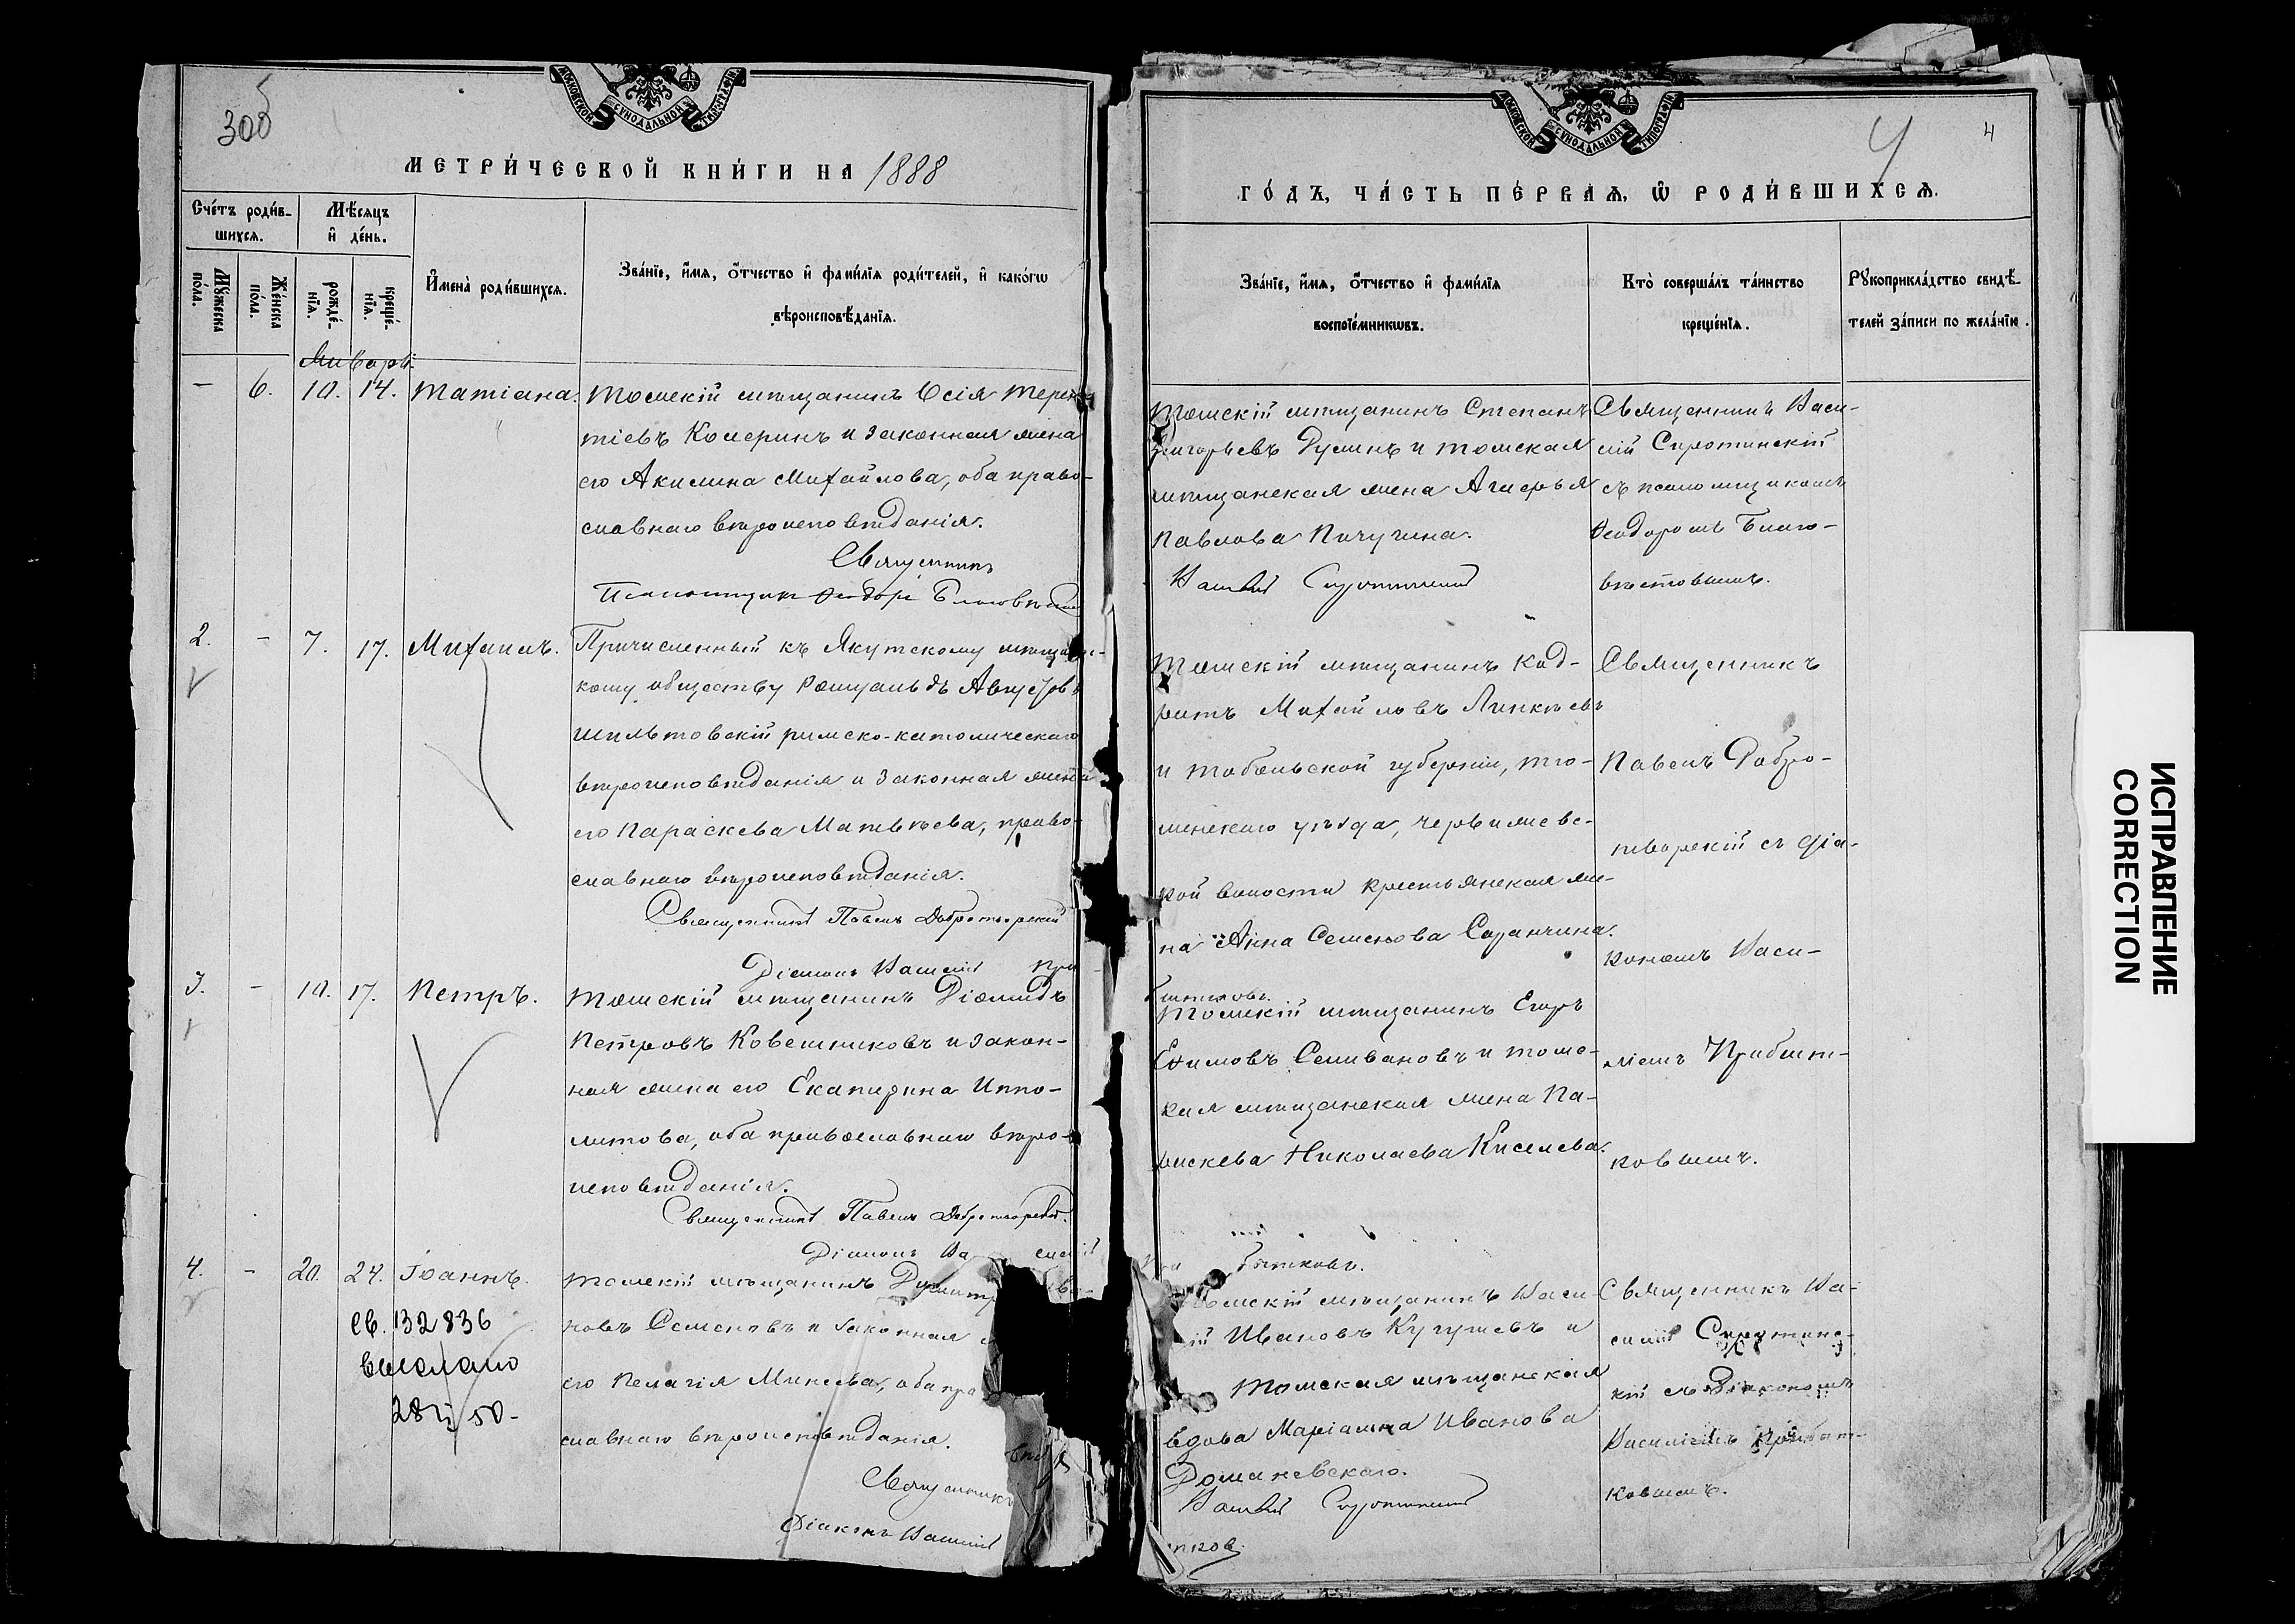 300
МОСКОВСКОЙ СУНОДАЛЬНОЙ ТИПОГРАФІИ
МЕТРИ́ЧЕСКОЙ КНИ́ГИ НА 1888
Сче́тъ роди́в-
шихсѧ.
Мѣ́сѧцъ
и҆ де́нь.
Мꙋ́жеска
по́ла.
Же́нска
по́ла.
рожде́-
нїѧ.
креще́-
нїѧ.
И҆мена̀ роди́вшихсѧ.
Зва́нїе, и҆́мѧ, ѻ҆́тчество и҆ фами́лїѧ роди́телей, и҆ како́гѡ
вѣроисповѣ́данїѧ.
Январь
- 6. 10. 14. Татіана.
Томскій мѣщанинъ Осія Терен-
тіевъ Комеринъ и законная жена
его Акилина Михайлова, оба право-
славнаго вѣроисповѣданія.
Священникъ
Псаломщикъ Ѳеодоръ Благовѣстовъ
2. - 7. 17. Михаилъ.
Причисленный къ Якутскому мѣщанс-
кому обществу Ромуальдъ Августовъ
Шильтовскій римско-католическаго
вѣроисповѣданія и законная жена
его Параскева Матвѣева, право-
славнаго вѣроисповѣданія.
Священникъ Павелъ Добротворскій
Діаконъ Василій При
3. - 10. 17. Петръ.
Томскій мѣщанинъ Діомидъ
Петровъ Ковешниковъ и закон-
ная жена его Екатерина Иппо-
литова, оба православнаго вѣро-
исповѣданія.
Священникъ Павелъ Добротворскій.
Діаконъ Ва силій
4. - 20. 24. Іоаннъ.
Св. 132836
выслано
28 50-
Томскій мѣщанинъ Димитр Ива-
новъ Семеновъ и законная
его Пелагія Минеева, оба пра
славнаго вѣроисповѣданія.
Священникъ
Діаконъ Василій
МОСКОВСКОЙ СУНОДАЛЬНОЙ ТИПОГРАФІИ
4 4
ГО́ДЪ, ЧА́СТЬ ПЕ́РВАѦ, Ѡ҆ РОДИ́ВШИХСѦ.
Зва́нїе, и҆́мѧ, ѻ҆́тчество и҆ фами́лїѧ
воспрїе́мникѡвъ.
Кто̀ соверша́лъ та́инство
креще́нїѧ.
Рꙋкоприкла́дство свидѣ́-
телей за́писи по жела́нїю.
Томскій мѣщанинъ Степанъ
Григорьевъ Русинъ и томская
мѣщанская жена Агнерья
Павлова Пичугина.
Василій Сиротинскій
Священникъ Васи-
лій Сиротинскій
съ псаломщикомъ
Ѳеодоромъ Благо-
вѣстовымъ.
Томскій мѣщанинъ Код-
ратъ Михайловъ Линкѣевъ
и Тобольской губерніи, Тю-
менскаго уѣзда, Червишевс-
кой волости крестьянская же-
на Анна Семенова Саранчина.
бытковъ.
Священникъ
Павелъ Добро-
творскій съ діа-
кономъ Васи-
ліемъ Прибыт-
ковымъ.
Томскій мѣщанинъ Егоръ
Ефимовъ Селивановъ и томс-
кая мѣщанская жена Па-
раскева Николаева Киселева.
При бытковъ.
Томскій мѣщанинъ Васи-
лій Ивановъ Кугушевъ и
Томская мѣщанская
вдова Маріамна Иванова
Романевскаго.
Василій Сиротинскій
тков
Священникъ Ва-
силій Сиротинс-
кій съ Діакономъ
Василіемъ Прибыт-
ковымъ.
ИСПРАВЛЕНИЕ
CORRECTION